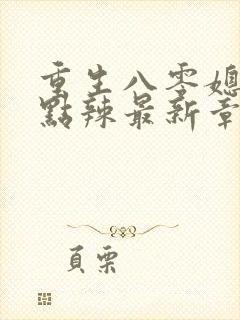 重生八零媳
點辣最新章
頁栗